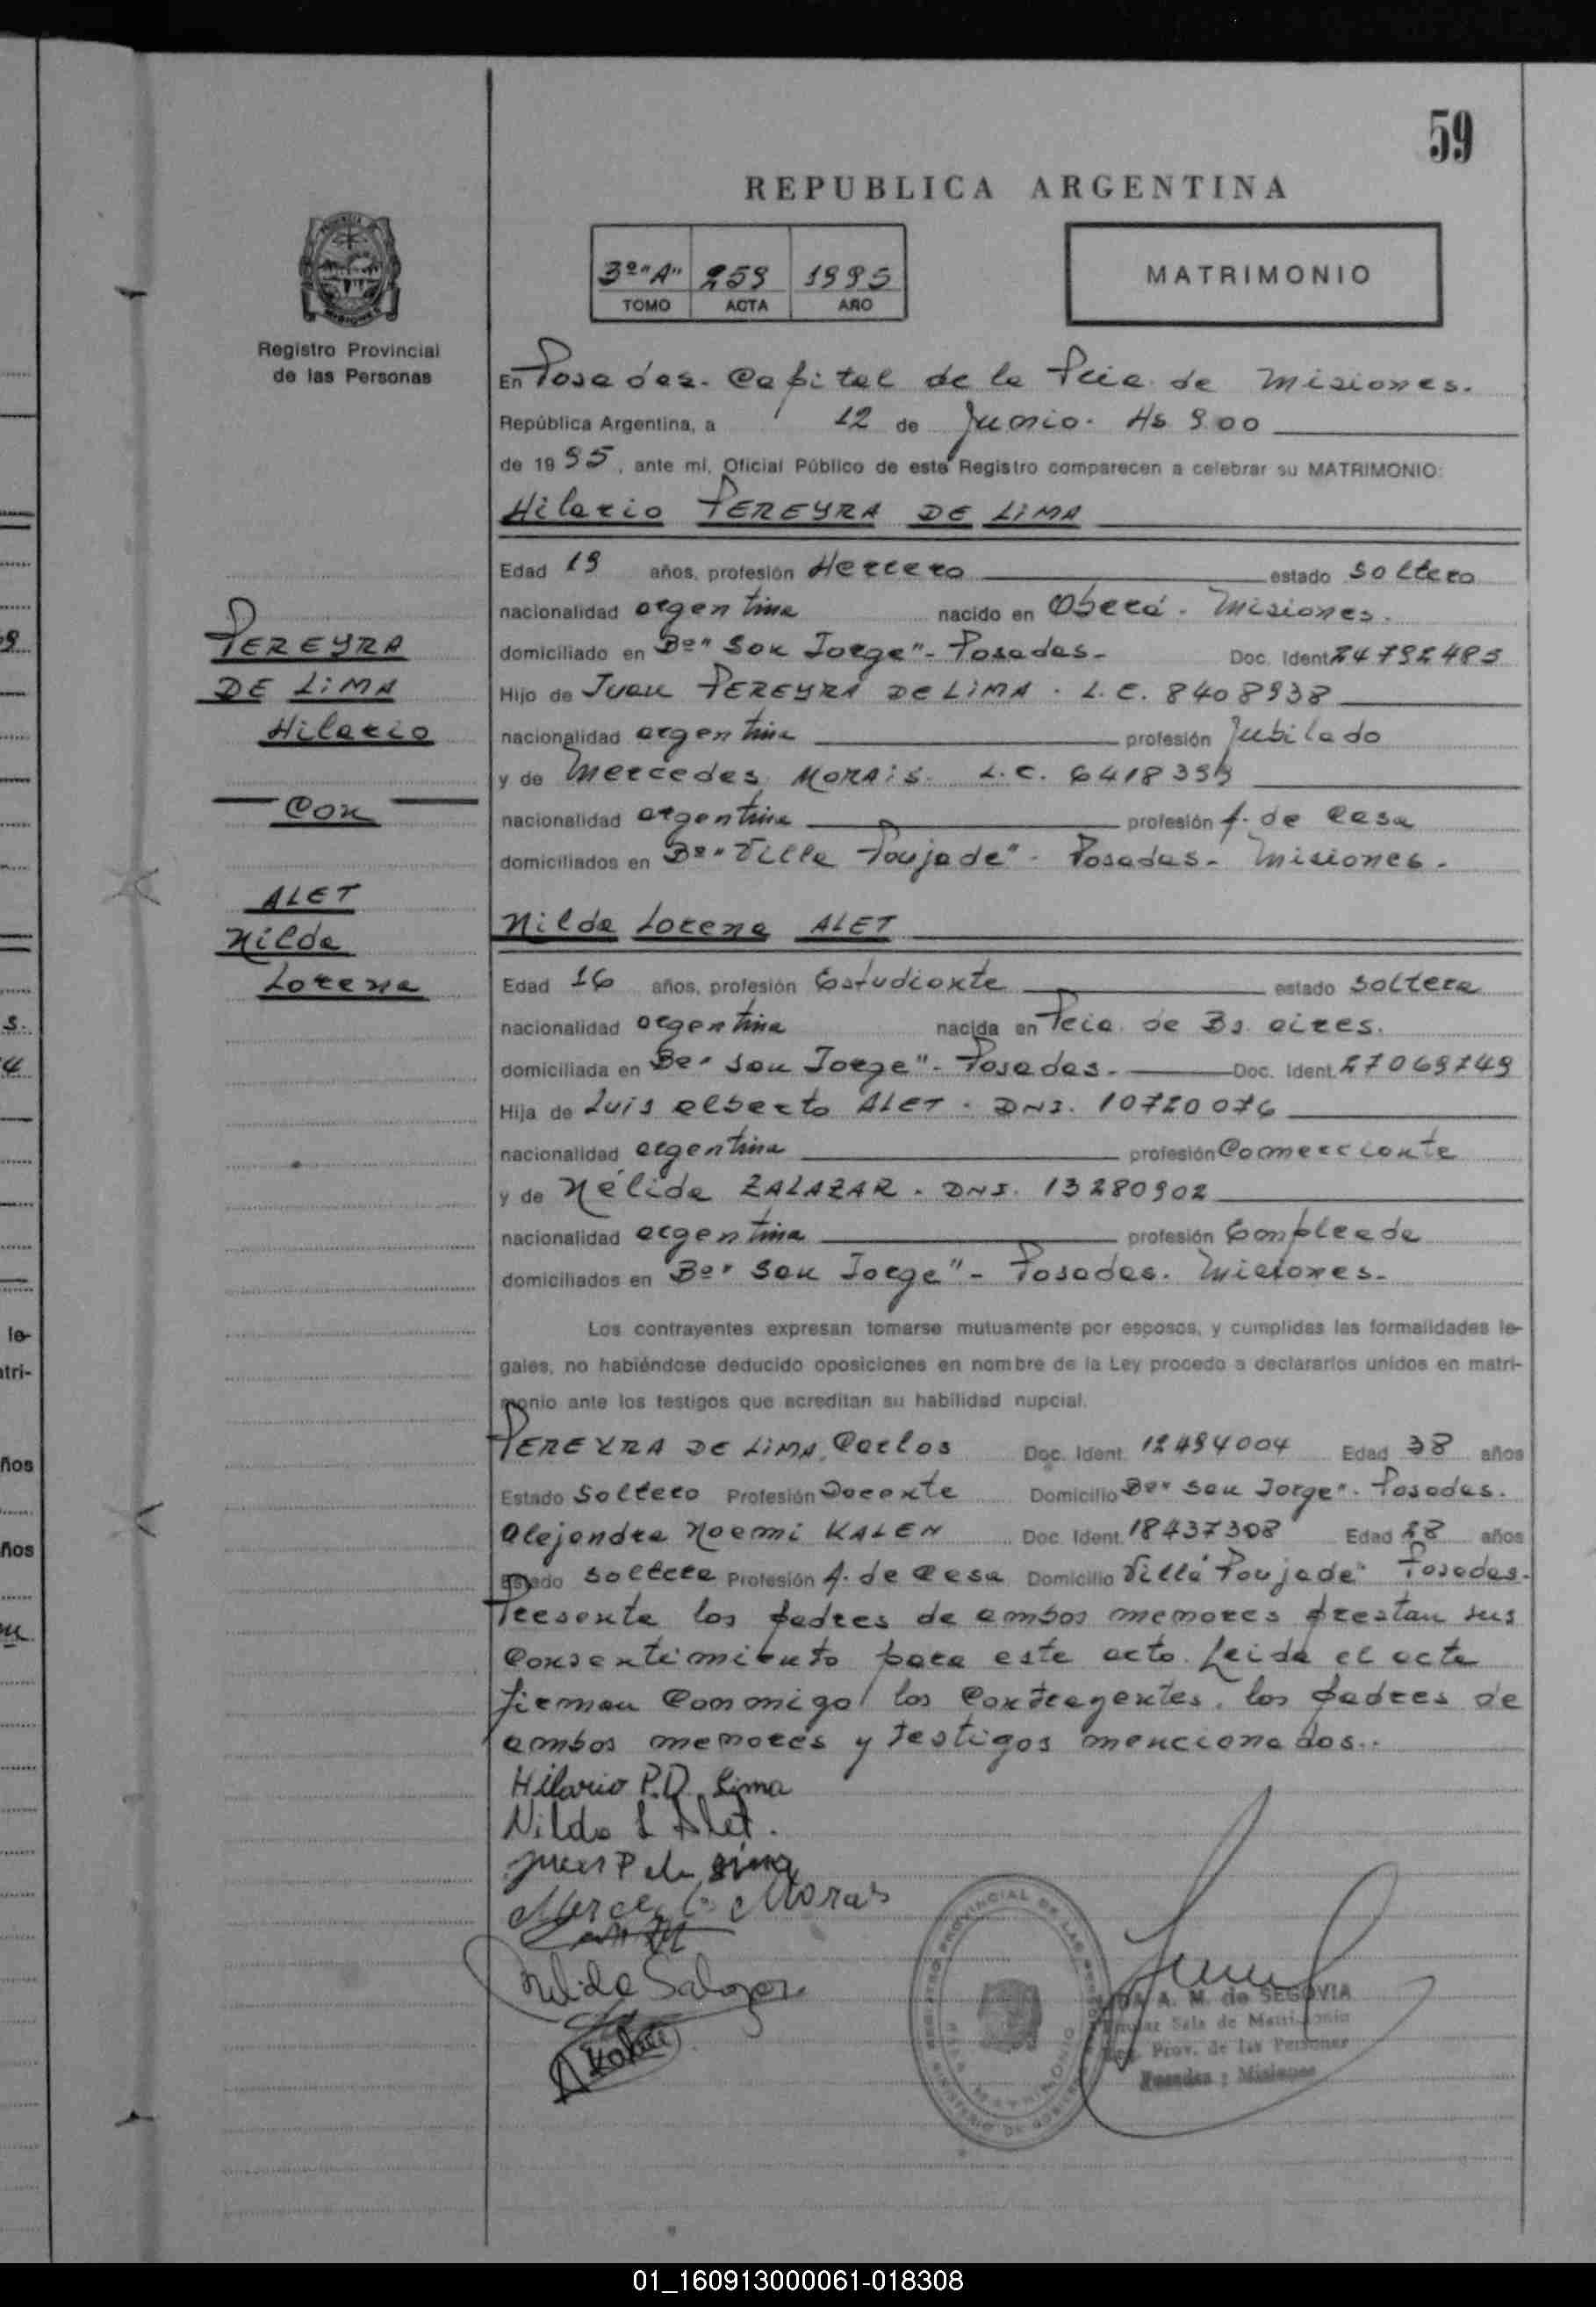 59
REPUBLICA ARGENTINA
3º "A" 259 1995
TOMO ACTA AÑO
MATRIMONIO
Registro Provincial
de las Personas
En Posadas. Capital de la Pcia. de Misiones.
República Argentina, a 12 de Junio. Hs 9.00
de 1995, ante mi, Oficial Público de este Registro comparecen a celebrar su MATRIMONIO:
Hilario PEREYRA DE LIMA
Edad 19 años, profesión Herrero estado soltero
nacionalidad argentina nacido en Oberá. Misiones.
domiciliado en Bº "San Jorge" - Posadas - Doc. Ident. 24792485
Hijo de Juan PEREYRA DE LIMA. L.E. 8408938
nacionalidad argentina profesión Jubilado
y de Mercedes MORAIS. L.C. 6418399
nacionalidad argentina profesión A. de Casa
domiciliados en Bº "Villa Poujade" - Posadas - Misiones.
Nilda Lorena ALET
Edad 16 años, profesión Estudiante estado soltera
nacionalidad argentina nacida en Pcia. de Bs. aires.
domiciliada en Bº "San Jorge" - Posadas. Doc. Ident. 27069249
Hija de Luis alberto ALET. DNI. 10720076
nacionalidad argentina profesión Comerciante
y de Nélida ZALAZAR. DNI. 13280902
nacionalidad argentina profesión Empleada
domiciliados en Bº "San Jorge" - Posadas. Misiones.
PEREYRA
DE LIMA
Hilario
Con
ALET
Nilda
Lorena
Los contrayentes expresan tomarse mutuamente por esposos, y cumplidas las formalidades le-
gales, no habiéndose deducido oposiciones en nombre de la Ley procedo a declararlos unidos en matri-
monio ante los testigos que acreditan su habilidad nupcial.
PEREYRA DE LIMA, Carlos Doc. Ident. 12494004 Edad 38 años
Estado Soltero Profesión Docente Domicilio Bº "San Jorge". Posadas.
Alejandra Noemi KALEN Doc. Ident. 18437308 Edad 28 años
Estado soltera Profesión A. de Casa Domicilio Villa "Poujade" Posadas.
Presente los padres de ambos menores prestan sus
Consentimiento para este acto. Leida el acta
firman Conmigo los Contrayentes, los padres de
ambos menores y testigos mencionados..
Hilario P.D. Lima
Nilda L Alet.
Juan P de Lima
Mercedes Morais
Nelida Salazar
A Kalen
REGISTRO PROVINCIAL DE LAS PERSONAS
SALA MATRIMONIO
MINISTERIO DE GOBIERNO
A. M. de SEGOVIA
Sala de Matrimonio
Prov. de las Personas
Posadas : Misiones
le-
atri-
ños
ños
01_160913000061-018308